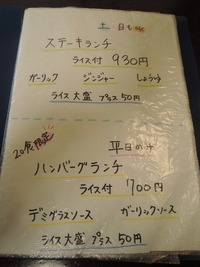 土日もOK
ステーキランチ
ライス付 930円
ガーリック ジンジャー しょうゆ
ライス大盛 プラス50円
20食限定
平日のみ
ハンバーグランチ
ライス付 700円
デミグラスソース ガーリックソース
ライス大盛 プラス50円